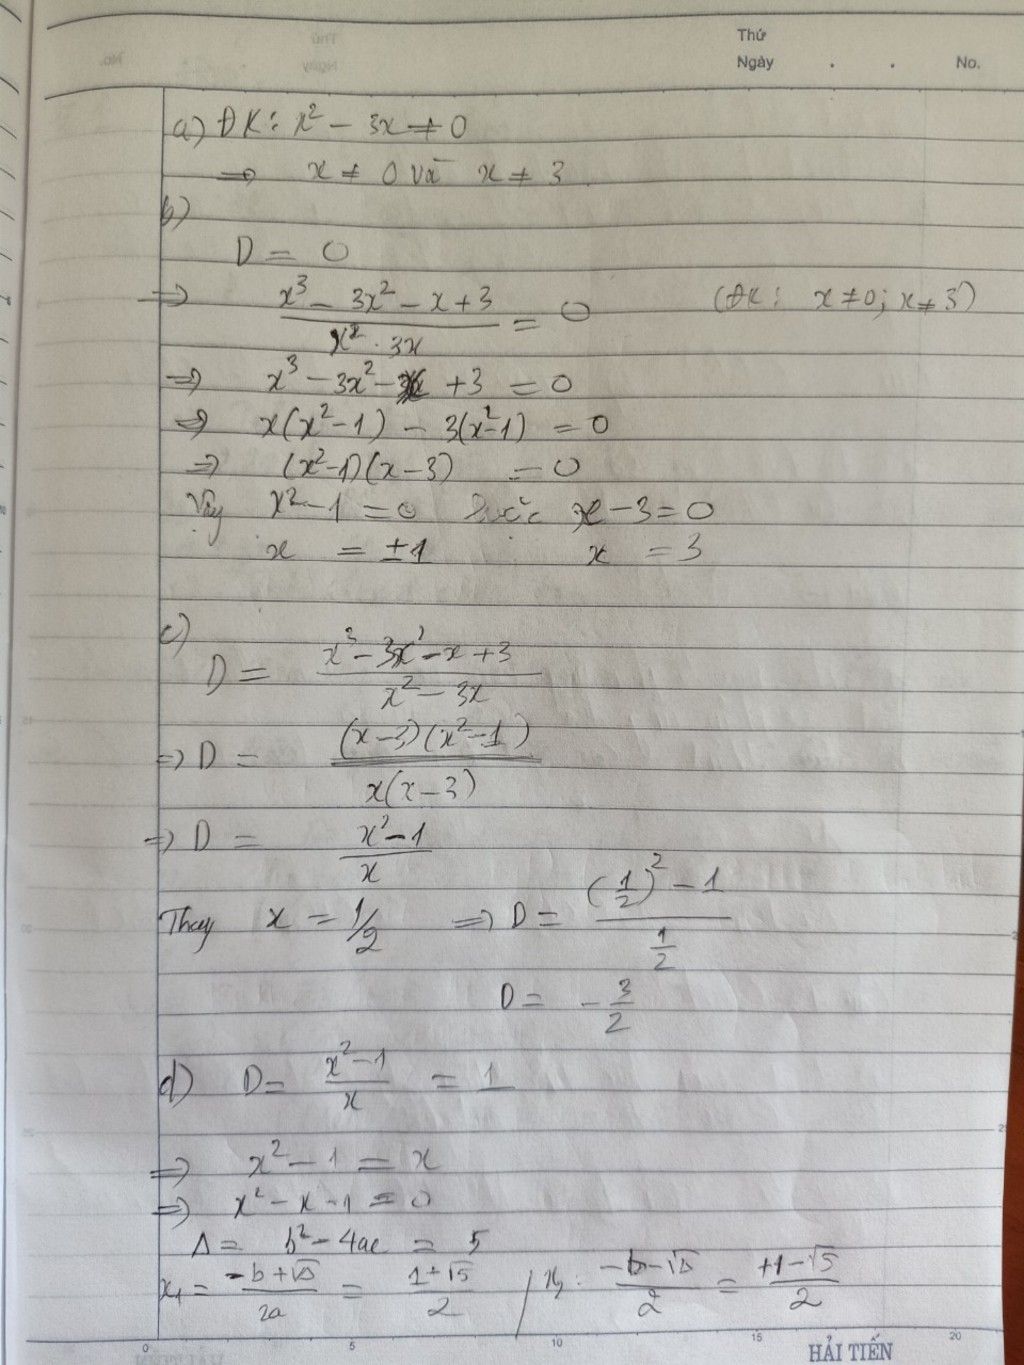 Thứ
Ngày . . No.
a) ĐK: x² - 3x ≠ 0
=> x ≠ 0 và x ≠ 3
b)
D = 0
=> (x³ - 3x² - x + 3)/(x² - 3x) = 0 (ĐK: x ≠ 0; x ≠ 3)
=> x³ - 3x² - x + 3 = 0
=> x(x² - 1) - 3(x² - 1) = 0
=> (x² - 1)(x - 3) = 0
Vậy x² - 1 = 0 hoặc x - 3 = 0
x = ±1 x = 3
c)
D = (x³ - 3x² - x + 3)/(x² - 3x)
=> D = ((x - 3)(x² - 1))/(x(x - 3))
=> D = (x² - 1)/x
Thay x = 1/2 => D = ((1/2)² - 1)/(1/2)
D = -3/2
d) D = (x² - 1)/x = 1
=> x² - 1 = x
=> x² - x - 1 = 0
Δ = b² - 4ac = 5
x₁ = (-b + √Δ)/2a = (1 + √5)/2 / x₂ = (-b - √Δ)/2 = (+1 - √5)/2
0 5 10 15 20
HẢI TIẾN